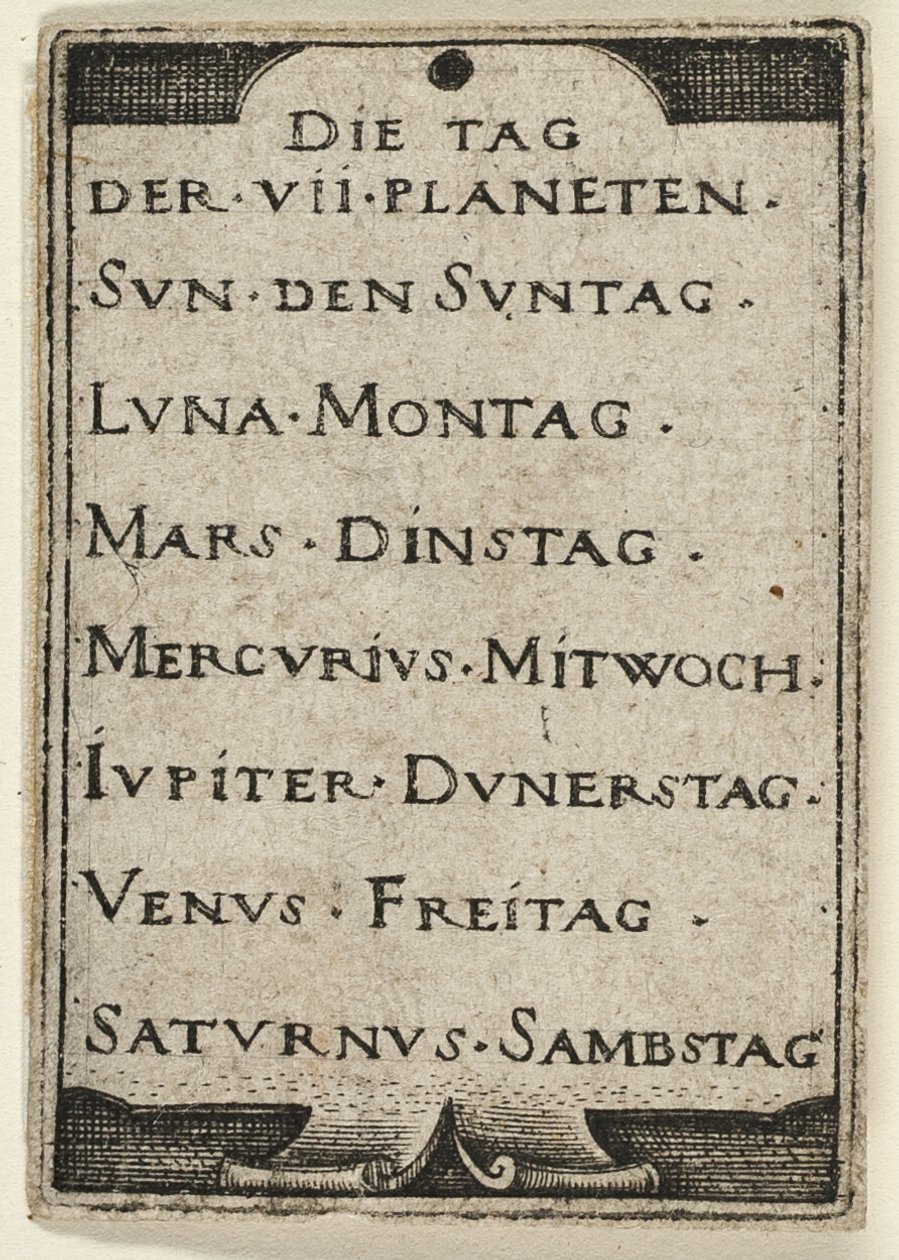 DiE TAG
DER · Vii · PLANETEN ·
SVN · DEN SVNTAG ·
LVNA · MONTAG ·
MARS · DiNSTAG ·
MERCVRiVS · MiTWOCH ·
iVPiTER · DVNERSTAG ·
VENVS · FREiTAG ·
SATVRNVS · SAMBSTAG